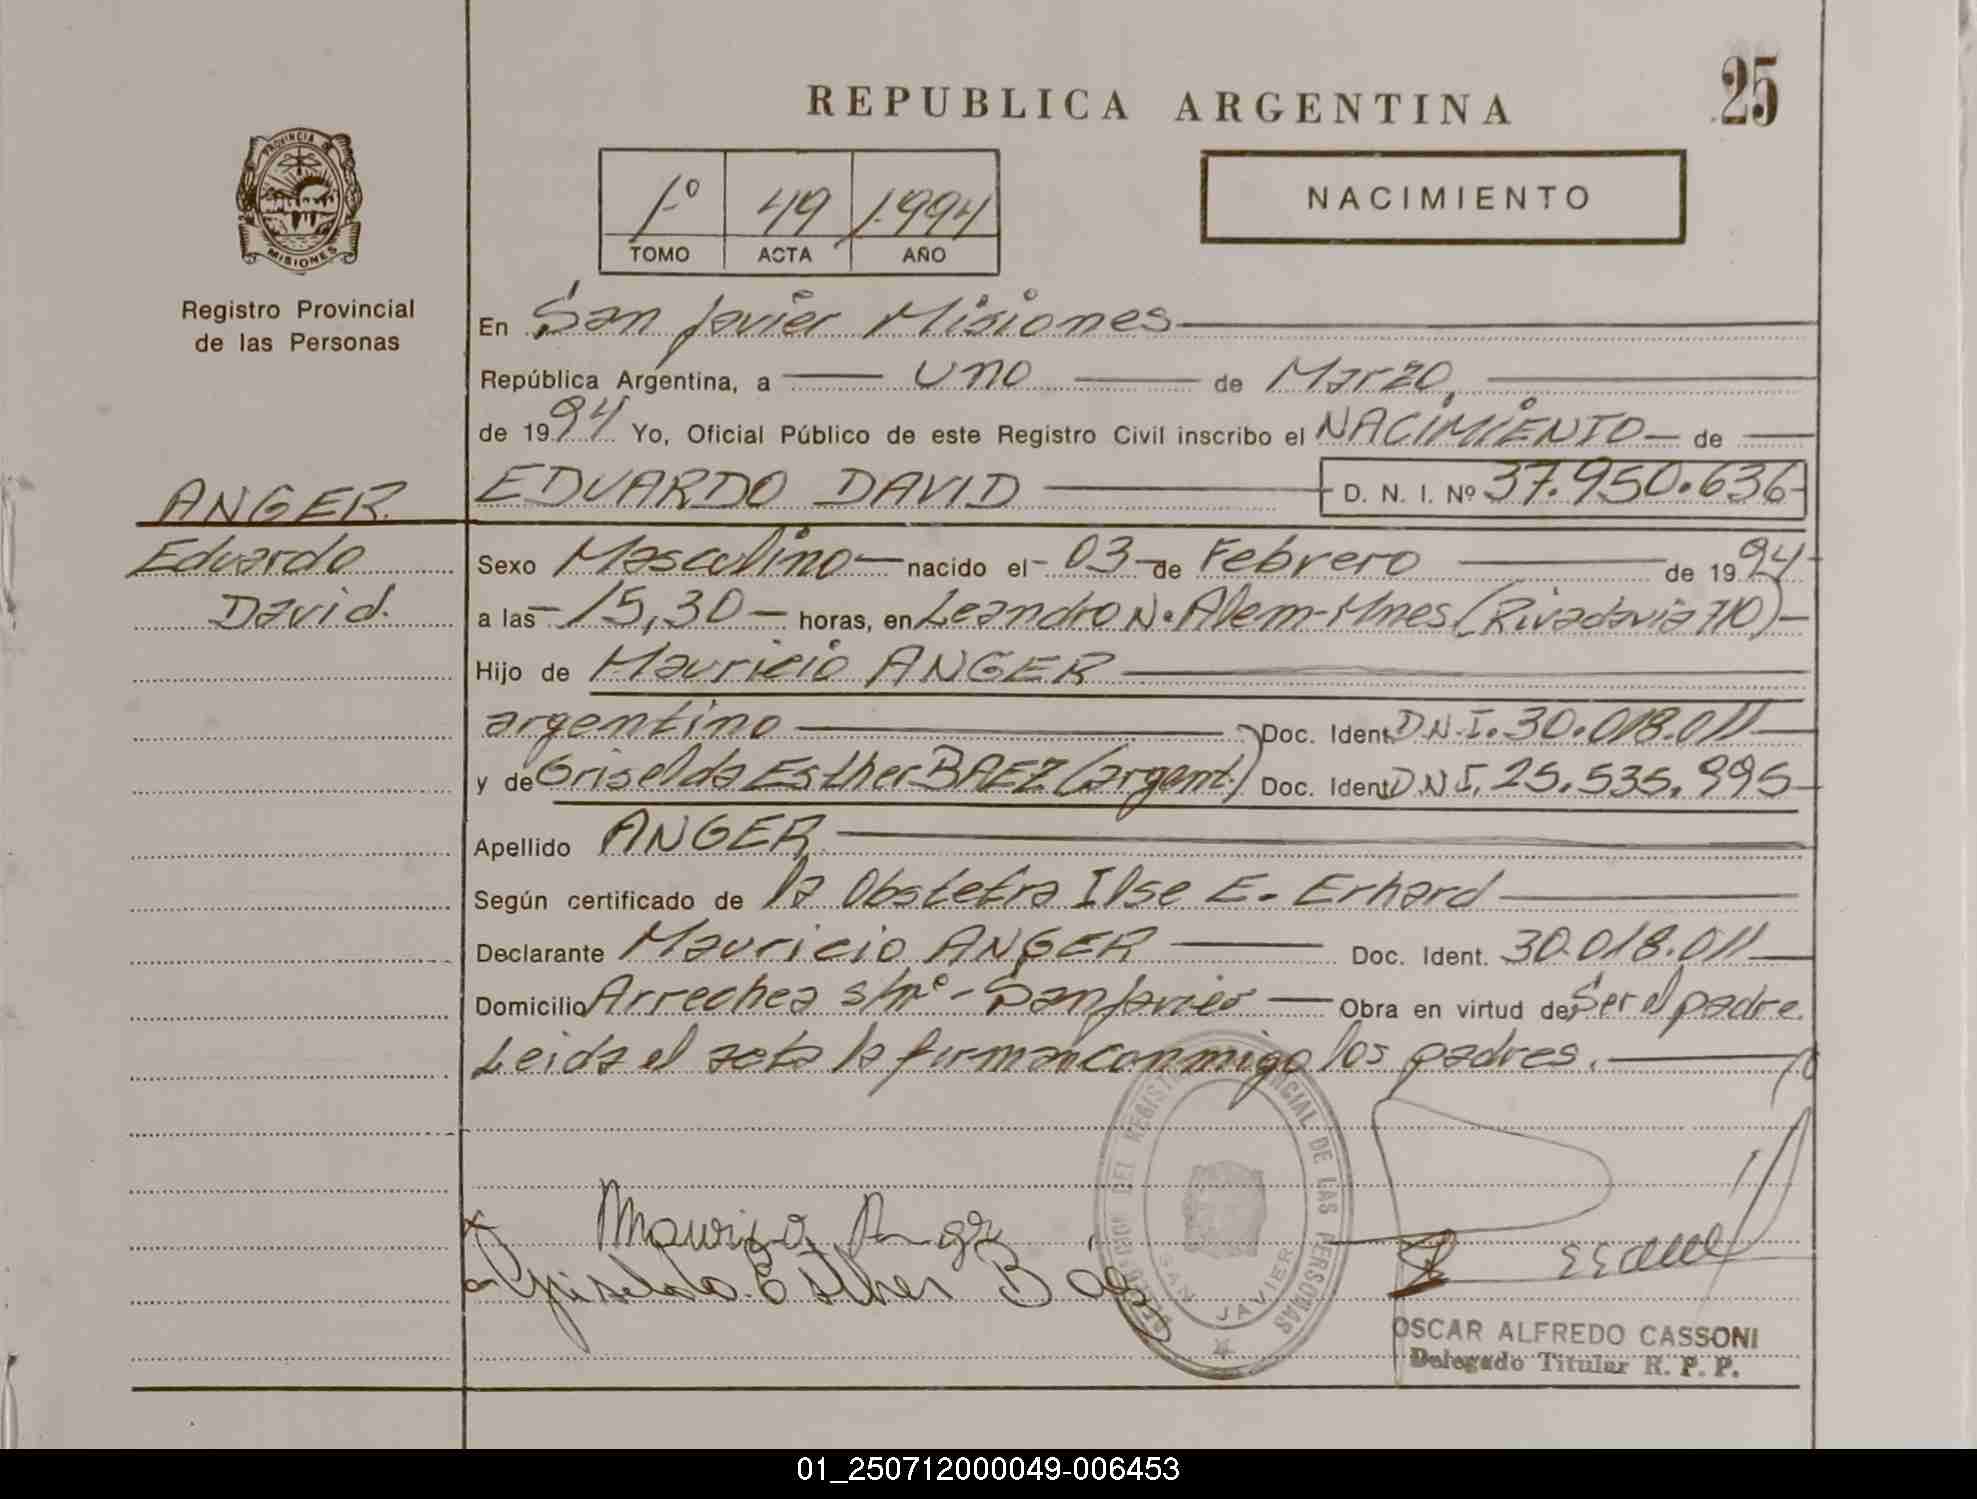 REPUBLICA ARGENTINA
25
PROVINCIA DE
MISIONES
Registro Provincial
de las Personas
1º 49 1994
TOMO ACTA AÑO
NACIMIENTO
En San Javier Misiones
República Argentina, a uno de Marzo
de 1994 Yo, Oficial Público de este Registro Civil inscribo el NACIMIENTO de
ANGER
Eduardo
David.
EDUARDO DAVID D. N. I. Nº 37.950.636
Sexo Masculino nacido el 03 de Febrero de 1994
a las 15,30 horas, en Leandro N. Alem-Mnes (Rivadavia 710)
Hijo de Mauricio ANGER
argentino Doc. Ident. D.N.I. 30.018.011
y de Griselda Esther BAEZ (argent.) Doc. Ident. D.N.I. 25.535.995
Apellido ANGER
Según certificado de la Obstetra Ilse E. Erhard
Declarante Mauricio ANGER Doc. Ident. 30.018.011
Domicilio Arrechea s/nº - San Javier Obra en virtud de Ser el padre.
Leida el acta la firman conmigo los padres.
Griselda Esther Baez
SAN JAVIER
OSCAR ALFREDO CASSONI
Delegado Titular R. P. P.
01_250712000049-006453